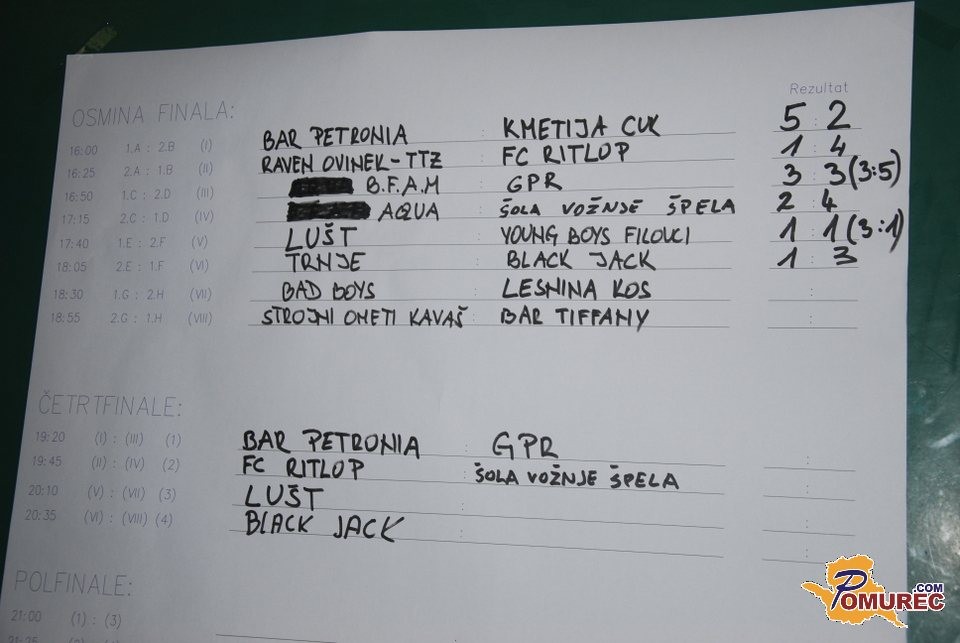 Rezultat
OSMINA FINALA:
16:00 1.A : 2.B (I) BAR PETRONIA : KMETIJA CUK 5 : 2
16:25 2.A : 1.B (II) RAVEN OVINEK-TTZ : FC RITLOP 1 : 4
16:50 1.C : 2.D (III) B.F.A.M : GPR 3 : 3 (3:5)
17:15 2.C : 1.D (IV) AQUA : ŠOLA VOŽNJE ŠPELA 2 : 4
17:40 1.E : 2.F (V) LUŠT : YOUNG BOYS FILOVCI 1 : 1 (3:1)
18:05 2.E : 1.F (VI) TRNJE : BLACK JACK 1 : 3
18:30 1.G : 2.H (VII) BAD BOYS : LESNINA KOS :
18:55 2.G : 1.H (VIII) STROJNI OMETI KAVAŠ : BAR TIFFANY :
ČETRTFINALE:
19:20 (I) : (III) (1) BAR PETRONIA : GPR :
19:45 (II) : (IV) (2) FC RITLOP : ŠOLA VOŽNJE ŠPELA :
20:10 (V) : (VII) (3) LUŠT : :
20:35 (VI) : (VIII) (4) BLACK JACK : :
POLFINALE:
21:00 (1) : (3)
POMUREC.COM